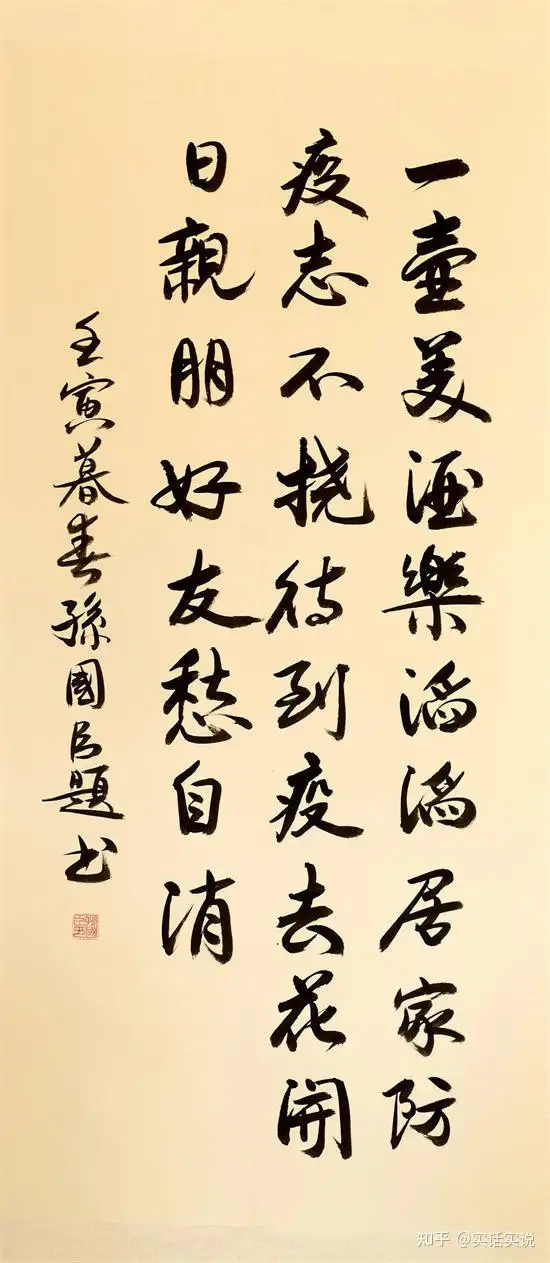 一壶美酒樂滔滔居家防
疫志不挠待到疫去花開
日親朋好友愁自消
壬寅暮春孫國良題书
知乎 @实话实说